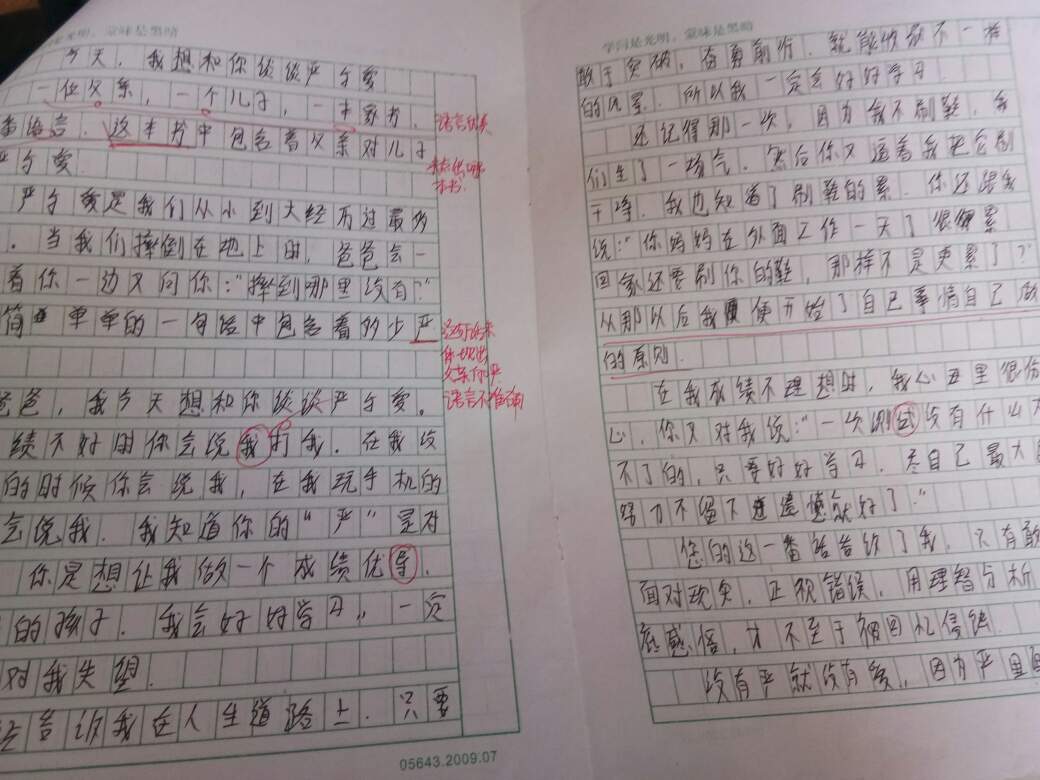 学习是光明，愚昧是黑暗
今天，我想和你谈谈严与爱
一位父亲，一个儿子，一本家书，
番语言，这本书中包含着父亲对儿子
严与爱
严与爱是我们从小到大经历过最多
．当我们摔倒在地上时，爸爸会一
着你一边又问你："摔到哪里没有？"
简单单的一句话中包含着多少严
爸爸，我今天想和你谈谈严与爱。
绩不好时你会说我打我．在我没
的时候你会说我，在我玩手机的
会说我．我知道你的"严"是对
你是想让我做一个成绩优
的孩子．我会好好学习，一定
对我失望．
告诉我在人生道路上．只要
语言
本书
父亲
语言不准确
05643.2009.07
学习是光明，愚昧是黑暗
敢于突破，奋勇前行．就能收获不一样
的风景．所以我一定会好好学习
还记得那一次，因为我不刷鞋，我
们生了一场气．然后你又逼着我把它刷
干净．我也知道了刷鞋的累．你还跟我
说："你妈妈在外面工作一天了很累
回家还要刷你的鞋，那样不是更累了？"
从那以后我便开始了自己事情自己做
的原则．
在我成绩不理想时，我心里很伤
心．你又对我说："一次测试没有什么大
不了的，只要好好学习．尽自己最大
努力不留下遗憾就好了．"
您的这一番话告诉了我．只有敢
面对现实，正视错误，用理智分析
底感悟，才不至于被回忆侵蚀
没有严就没有爱．因为严里